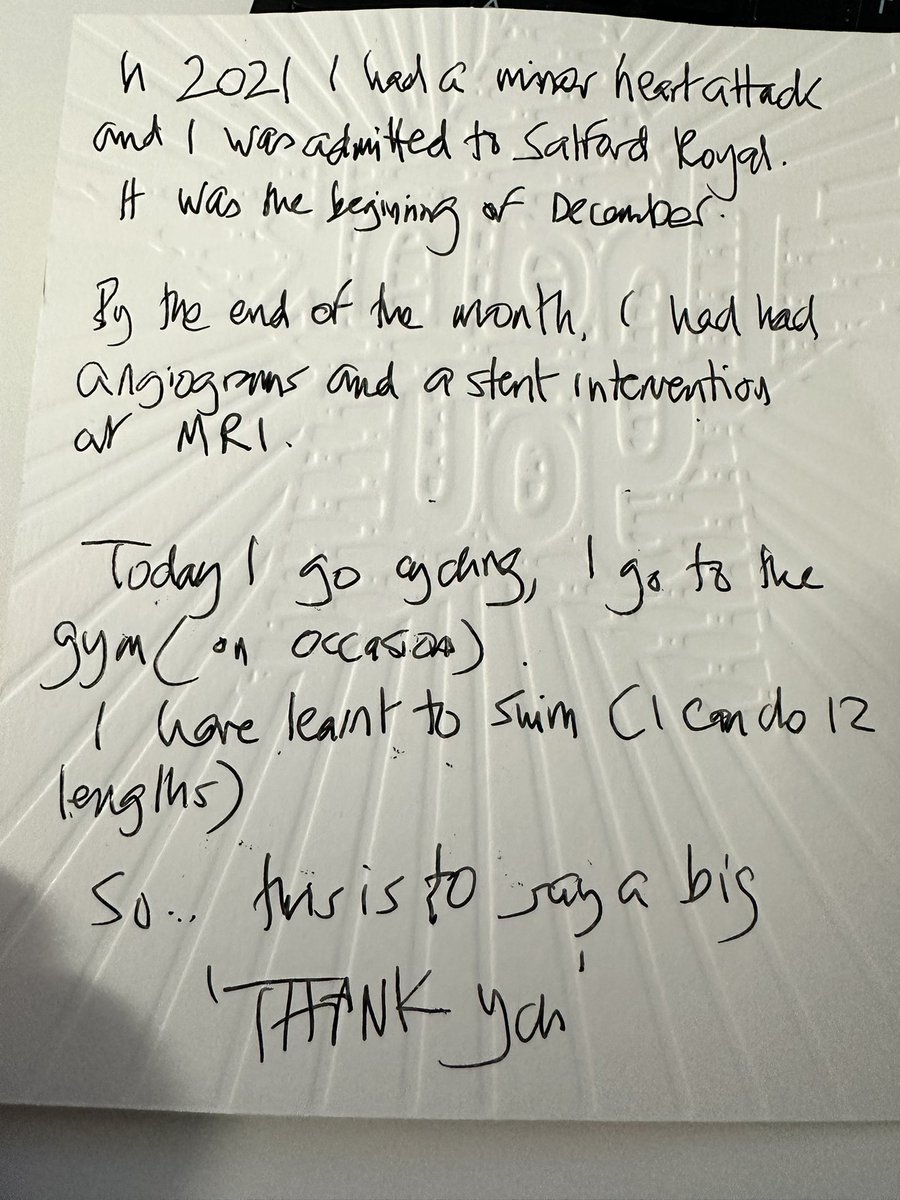 In 2021 I had a minor heart attack
and I was admitted to Salford Royal.
It was the begining of December.
By the end of the month, I had had
angiograms and a stent intervention
at MRI.
Today I go cycling, I go to the
gym (on occasion).
I have learnt to swim (I can do 12
lengths)
So... this is to say a big
'THANK you'